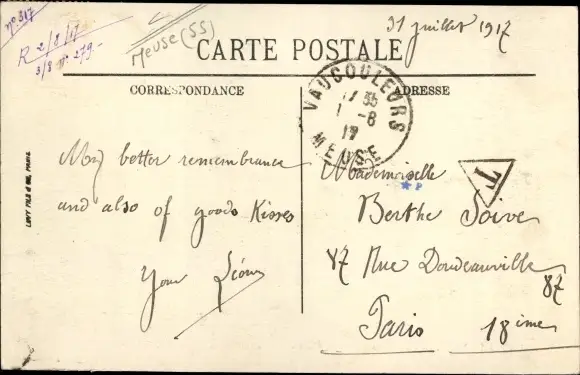 n° 317
R 2/8/17
3/8 n° 279-
Meuse (55)
31 juillet 1917
CARTE POSTALE
CORRESPONDANCE
ADRESSE
VAUCOULEURS
17 35
1 -8
17
MEUSE
T
My better remembrance
and also of goods Kisses
Your Léon
Mademoiselle
Berthe Soive
87 Rue Doudeauville
87
Paris 18ème
LEVY FILS & Cie, PARIS